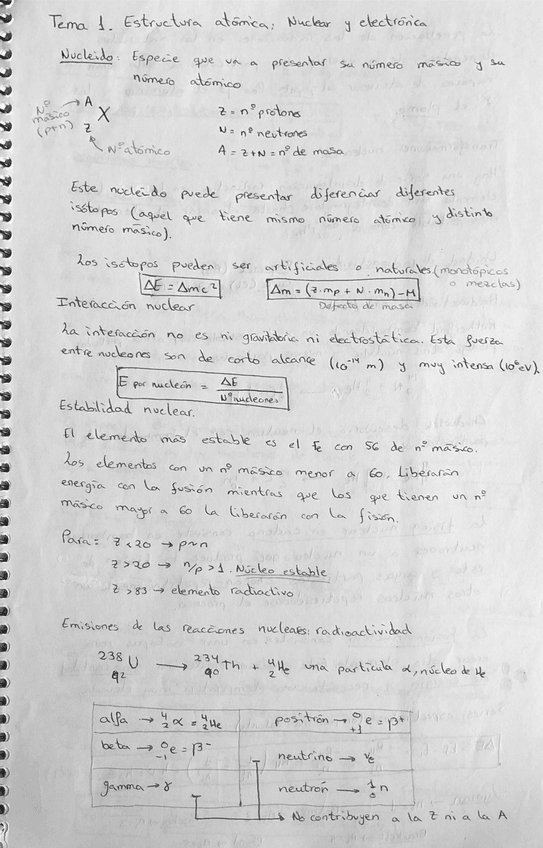 Tema 1. Estructura atómica: Nuclear y electrónica
Nucleido: Especie que va a presentar su número másico y su
número atómico
Nº másico (p+n) → A X Z = nº protones
Z N = nº neutrones
Nº atómico A = Z+N = nº de masa
Este nucleido puede presentar diferenciar diferentes
isótopos (aquel que tiene mismo número atómico y distinto
número másico).
Los isótopos pueden ser artificiales o naturales (monotópicos
o mezclas)
ΔE = Δmc² Δm = (Z·mp + N·mn) - M
Defecto de masa
Interacción nuclear
La interacción no es ni gravitatoria ni electrostática. Esta fuerza
entre nucleones son de corto alcance (10⁻¹⁴ m) y muy intensa (10⁶eV).
E por nucleón = ΔE / Nº nucleones
Estabilidad nuclear.
El elemento más estable es el Fe con 56 de nº másico.
Los elementos con un nº másico menor a 60. Liberarán
energía con la fusión mientras que los que tienen un nº
másico mayor a 60 la liberarán con la fisión.
Para: Z < 20 → p≈n
Z > 20 → n/p > 1. Núcleo estable
Z > 83 → elemento radiactivo
Emisiones de las reacciones nucleares: radioactividad
²³⁸₉₂U → ²³⁴₉₀Th + ⁴₂He una partícula α, núcleo de He
alfa → ⁴₂α = ⁴₂He positrón → ⁰₊₁e = β⁺
beta → ⁰₋₁e = β⁻ neutrino → νe
gamma → γ neutrón → ¹₀n
→ No contribuyen a la Z ni a la A